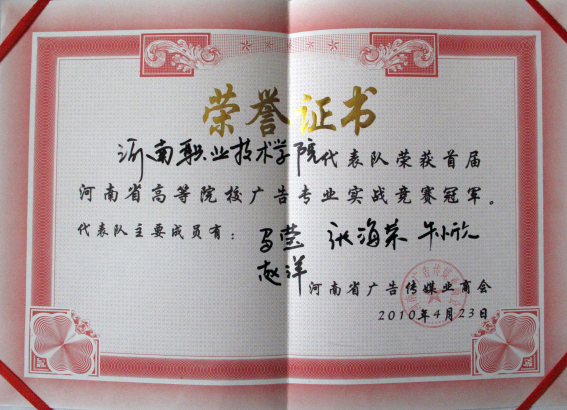 荣誉证书
河南职业技术学院代表队荣获首届
河南省高等院校广告专业实战竞赛冠军。
代表队主要成员有：马莹 张海荣 牛小欣
赵洋
河南省广告传媒业商会
2010年4月23日